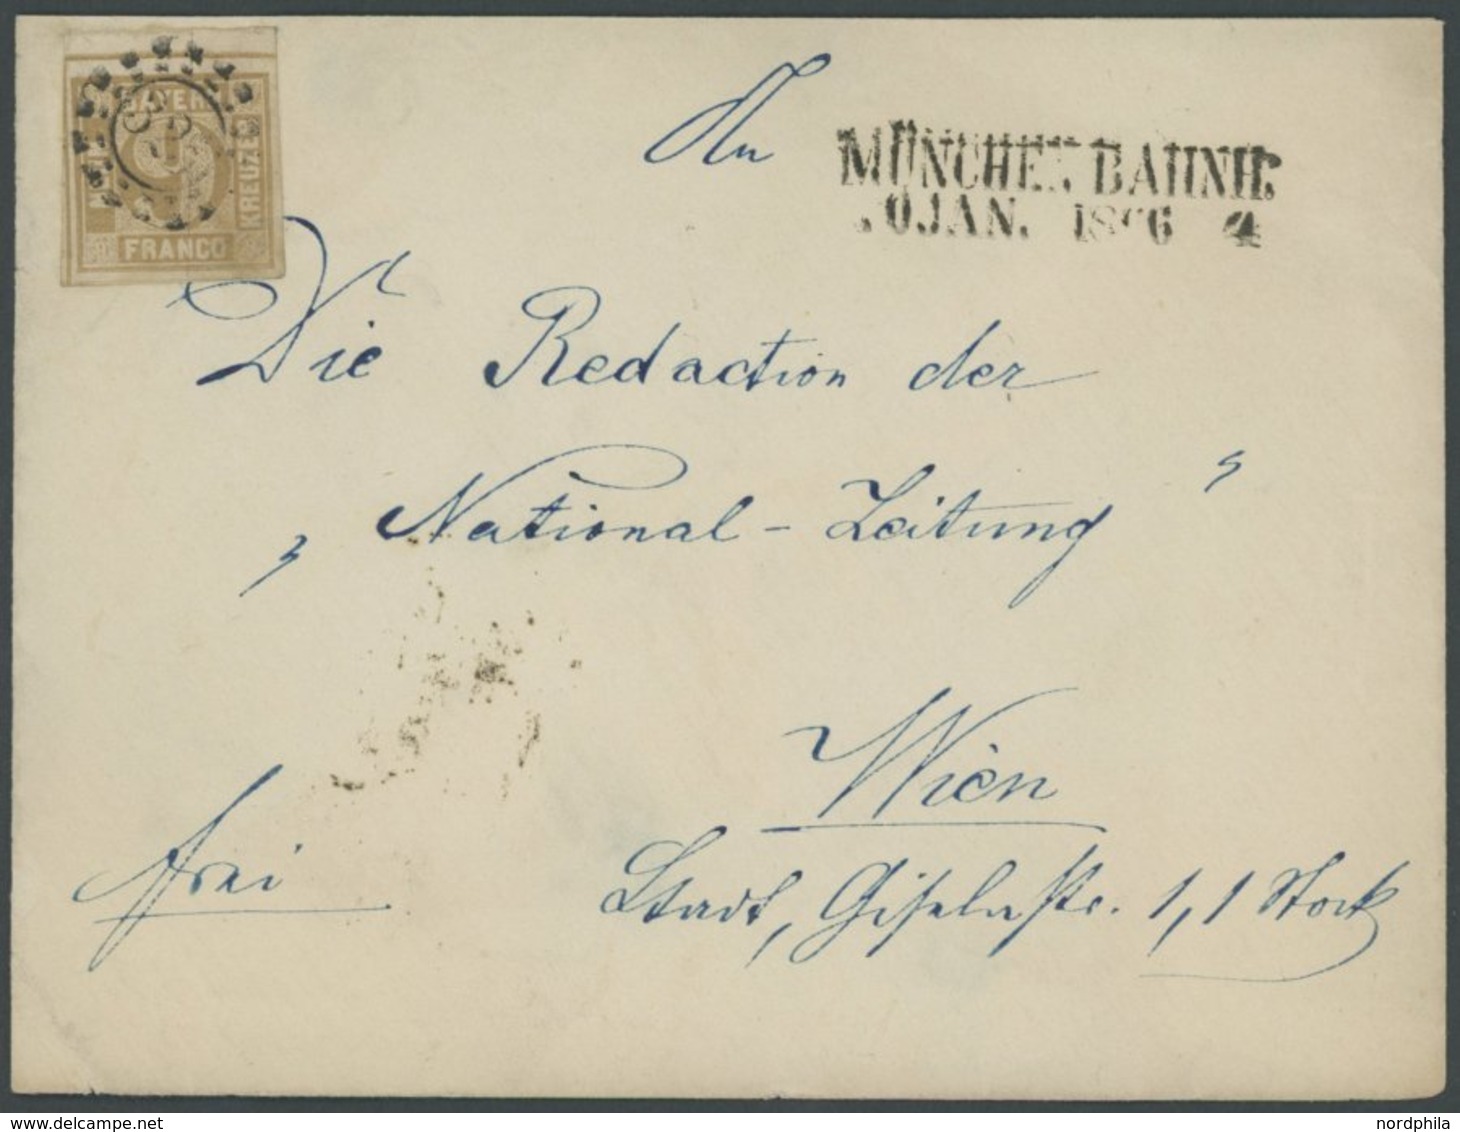 BAYERN
KREUZER
FRANCO
An
MÜNCHEN BAHNH.
0 JAN. 1866 4
Die Redaction der
„National-Zeitung"
Wien
frei
Stadt, Giselastr. 1, 1 Stock
nordphila